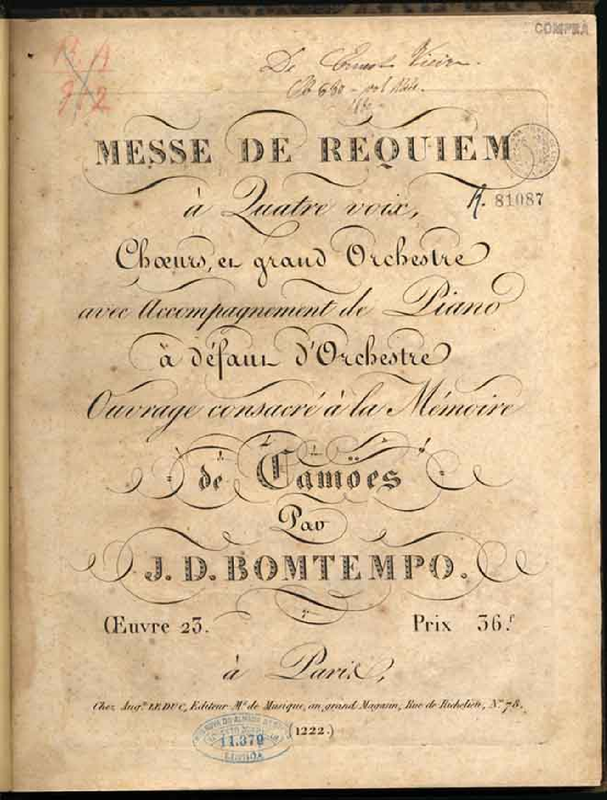 COMPRA
R. A
9 2
De Ernesto Vieira
MESSE DE REQUIEM
à Quatre voix,
R. 81087
Chœurs, et grand Orchestre
avec Accompagnement de Piano
à défaut d'Orchestre
Ouvrage consacré à la Mémoire
de Camöes
Par
J. D. BOMTEMPO.
Œuvre 23. Prix 36.f
à Paris,
Chez Aug.te LEDUC, Editeur M.d de Musique, au grand Magasin, Rue de Richelieu, N.o 78.
(1222.)
11.379
LISBOA